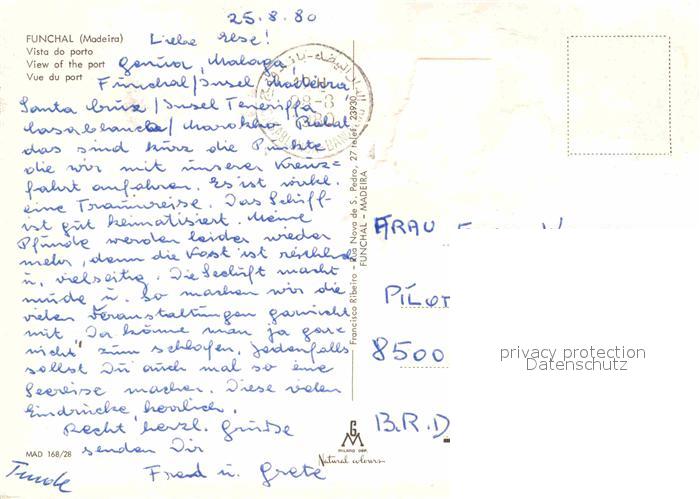 25.8.80
FUNCHAL (Madeira)
Vista do porto
View of the port
Vue du port
Liebe Else!
Genua, Malaga,
Funchal/Insel Madeira,
Santa Cruz/Insel Teneriffa
Casablanca/Marokko
das sind kurz die Punkte
die wir mit unserer Kreuz=
fahrt anfahren. Es ist wirkl.
eine Traumreise. Das Schiff
ist gut klimatisiert. Meine
Pfunde werden leider wieder
mehr, denn die Kost ist reichhalt.
u. vielseitig. Die Seeluft macht
müde u. so machen wir die
vielen Veranstaltungen gar nicht
mit. Da könne man ja gar=
nicht zum schlafen. Jedenfalls
sollst Du auch mal so eine
Seereise machen. Diese vielen
Eindrücke, herrlich.
Recht herzl. Grüße
senden Dir
Fred u. Grete
MAD 168/28
Francisco Ribeiro - Rua Nova de S. Pedro, 27 Telef. 23930
FUNCHAL - MADEIRA
GM
MILANO DEP.
Natural colours
FRAU
PILOT
8500
B.R.D
privacy protection
Datenschutz